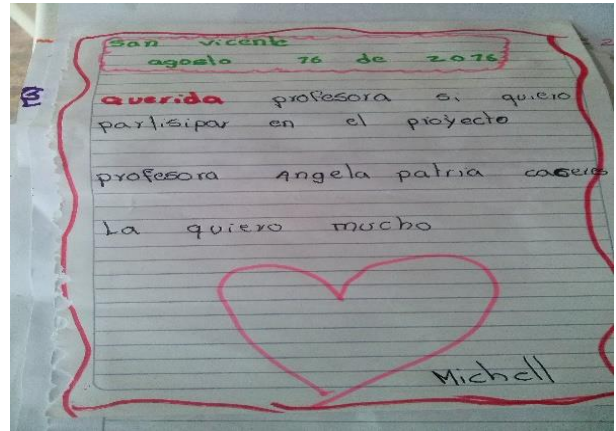 san vicente
agosto 16 de 2016
querida profesora si quiero
partisipar en el proyecto
profesora Angela patria
La quiero mucho
Michell